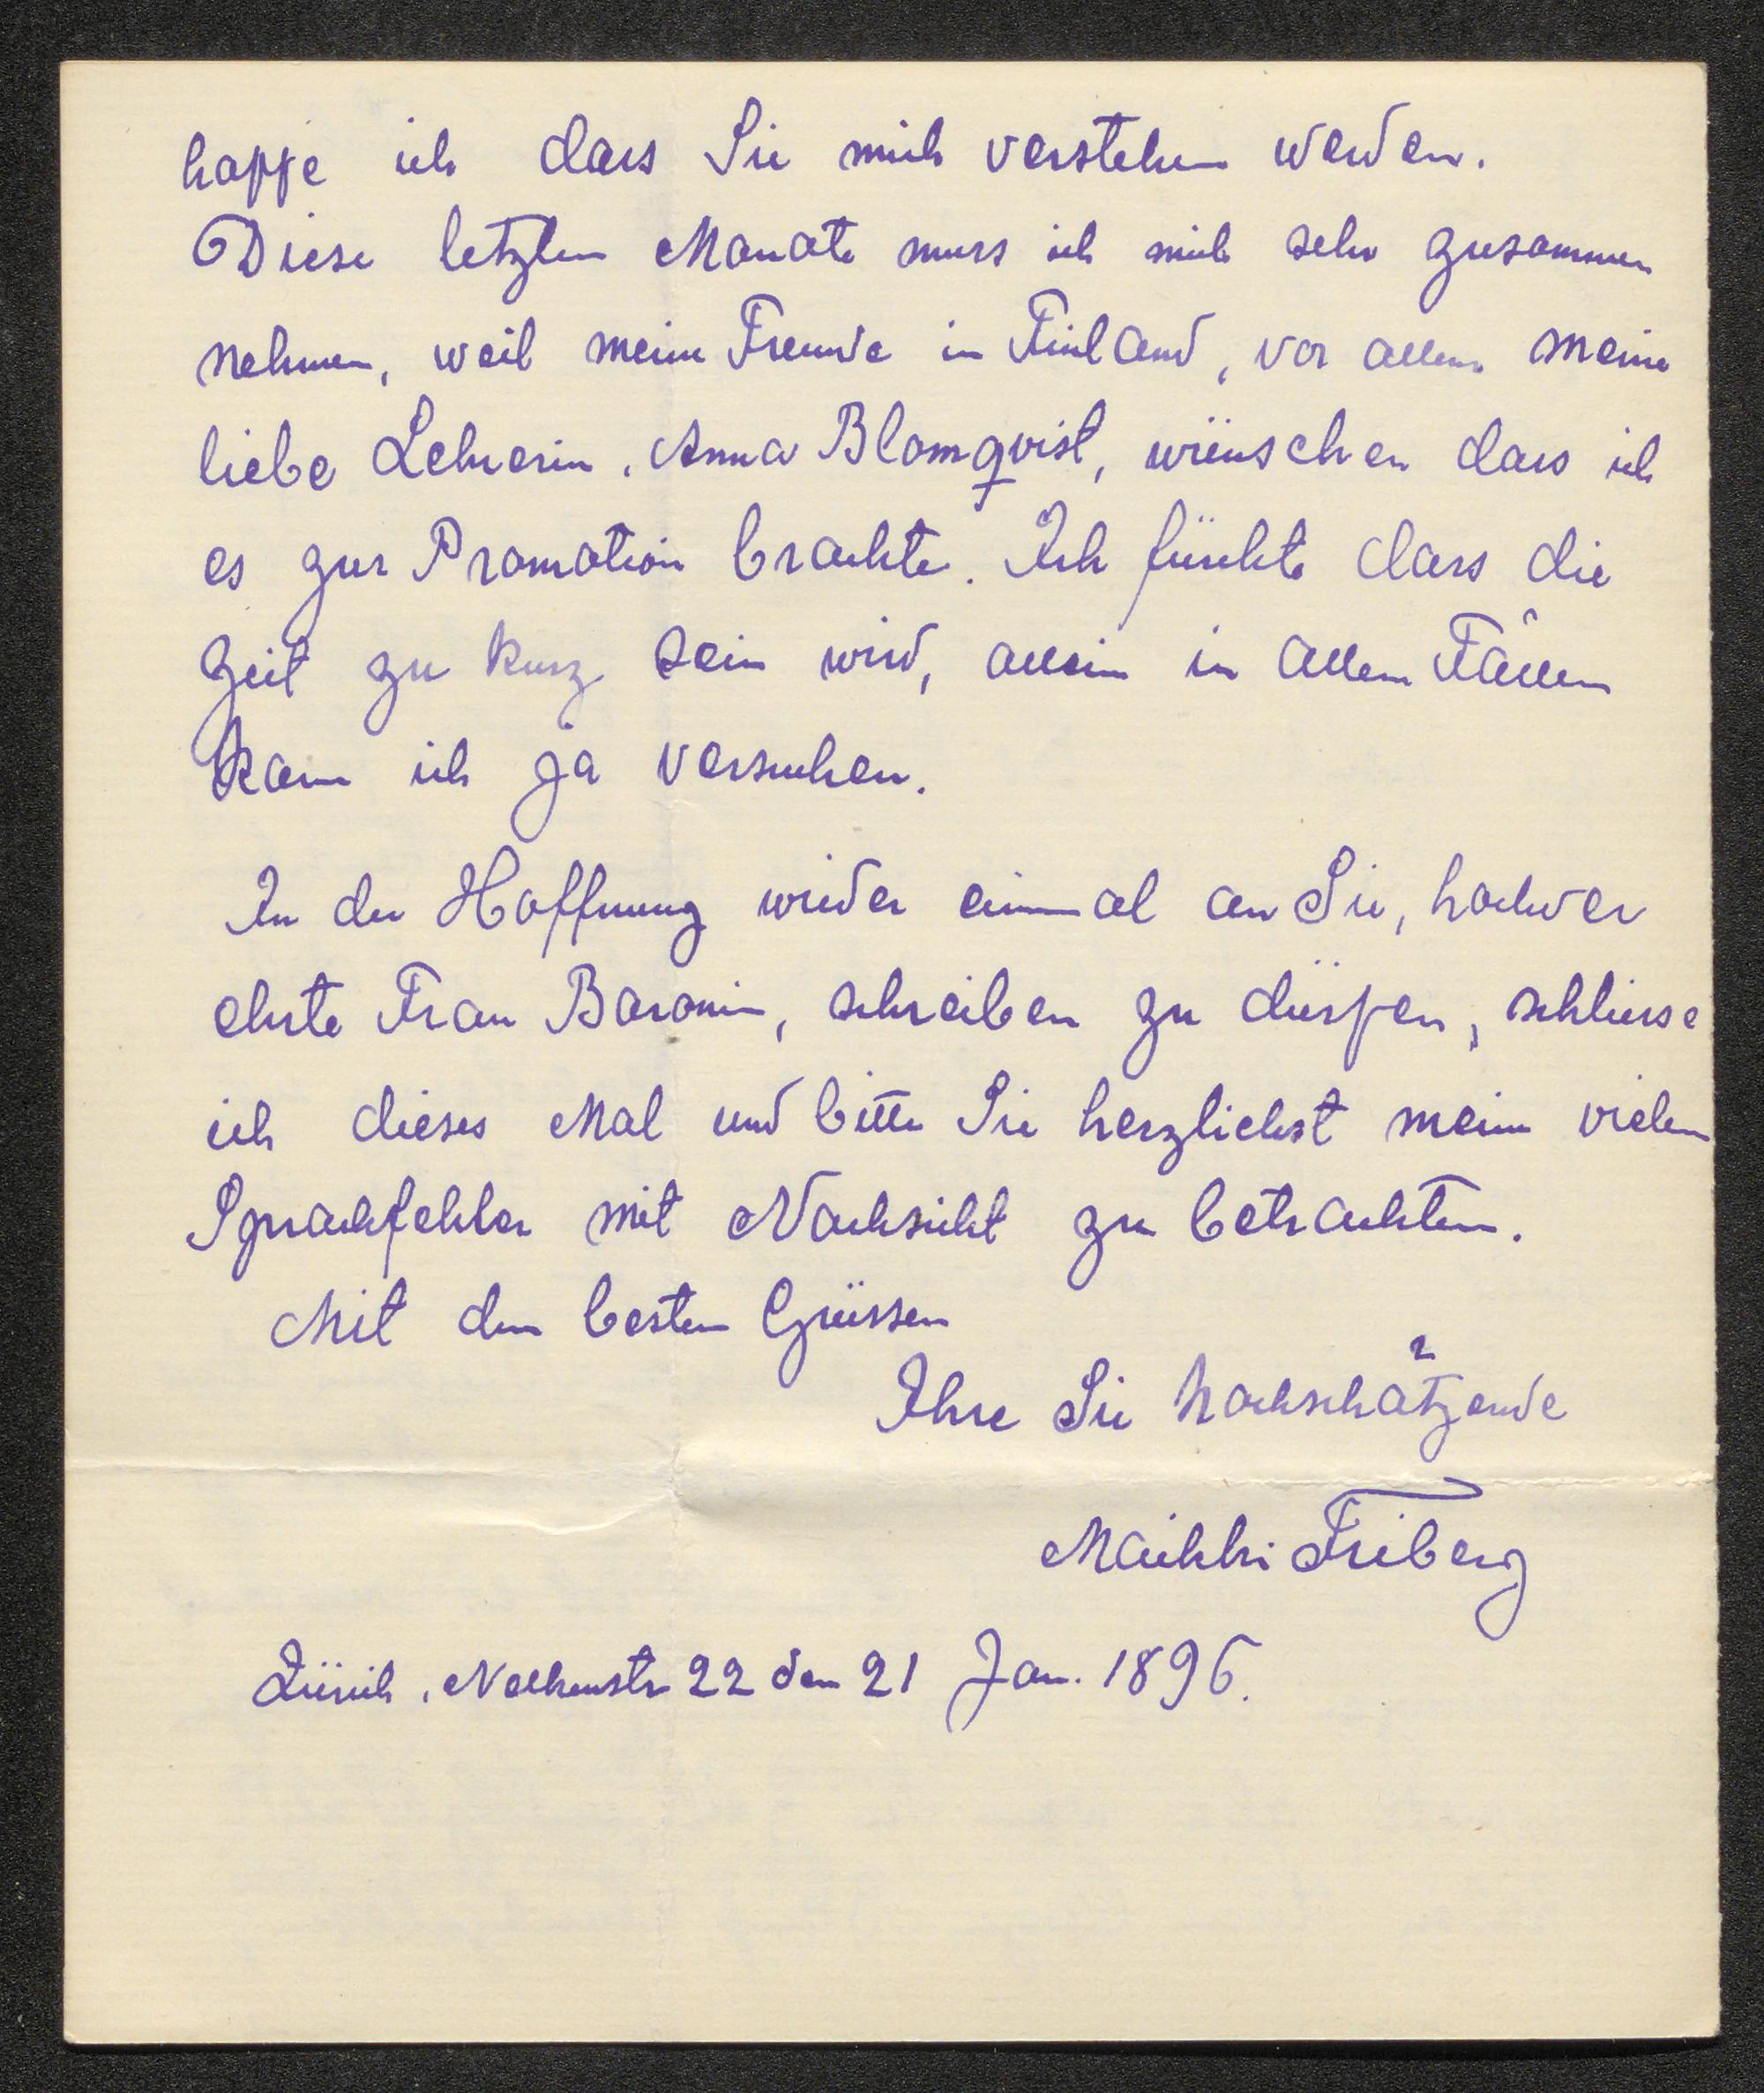 hoffe ich dass Sie mich verstehen werden.
Diese letzten Monate muss ich mich sehr zusammen
nehmen, weil meine Freunde in Finland, vor allem meine
liebe Lehrerin, Anna Blomqvist, wünschen dass ich
es zur Promotion brachte. Ich fürchte dass die
Zeit zu kurz sein wird, allein in allen Fällen
kann ich ja versuchen.
In der Hoffnung wieder einmal an Sie, hochver
ehrte Frau Baronin, schreiben zu dürfen, schliesse
ich dieses Mal und bitte Sie herzlichst meine vielen
Sprachfehler mit Nachsicht zu betrachten.
Mit den besten Grüssen
Ihre Sie hochschätzende
Maikki Friberg
Zürich, Nelkenstr 22 den 21 Jan. 1896.